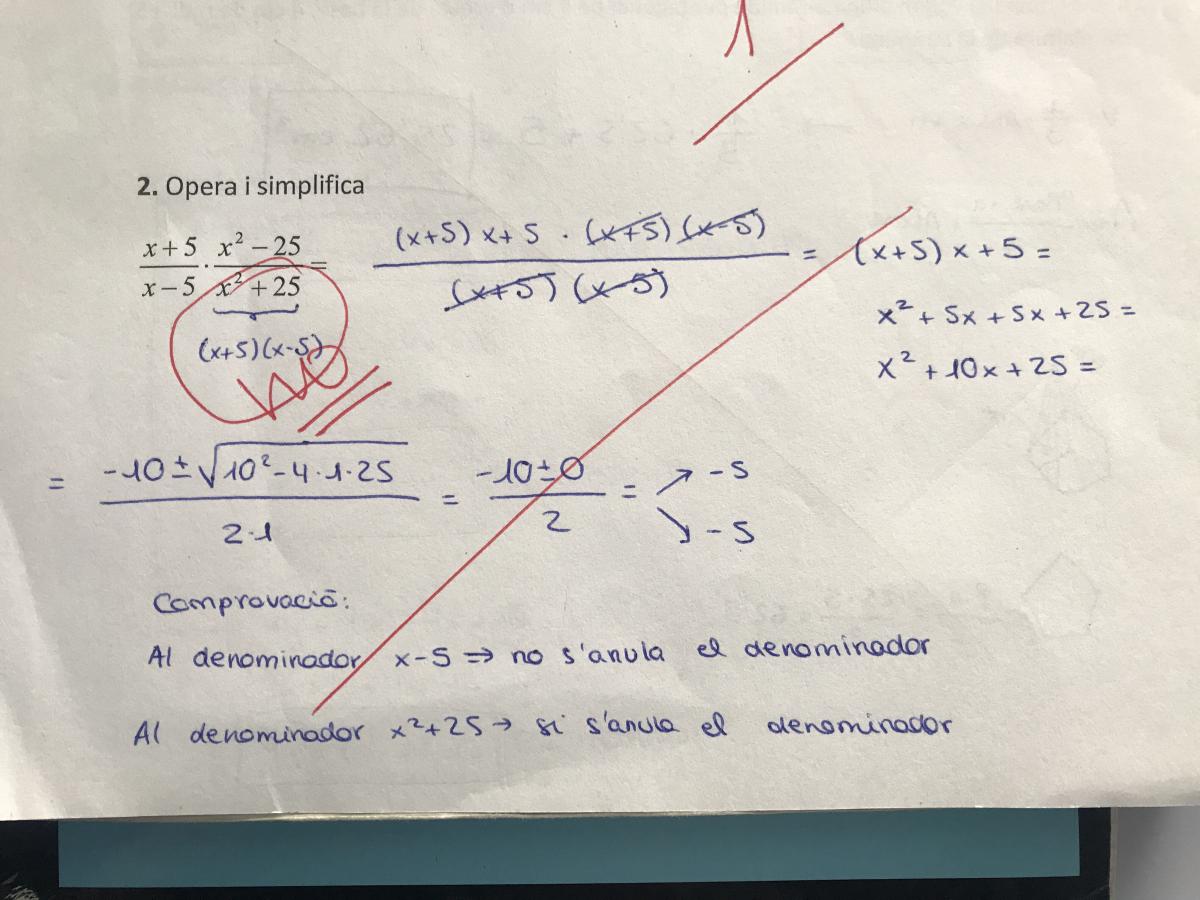 1
2. Opera i simplifica
x+5/x−5 · x²−25/x²+25 = (x+5) x+5 · (x+5)(x-5)/(x+5)(x-5) = (x+5) x+5 =
(x+5)(x-5)
x² + 5x + 5x + 25 =
x² + 10x + 25 =
NO
= -10 ± √10² - 4·1·25/2·1 = -10±0/2 = ↗ -5
↘ -5
Comprovació:
Al denominador x-5 ⇒ no s'anula el denominador
Al denominador x²+25 → si s'anula el denominador